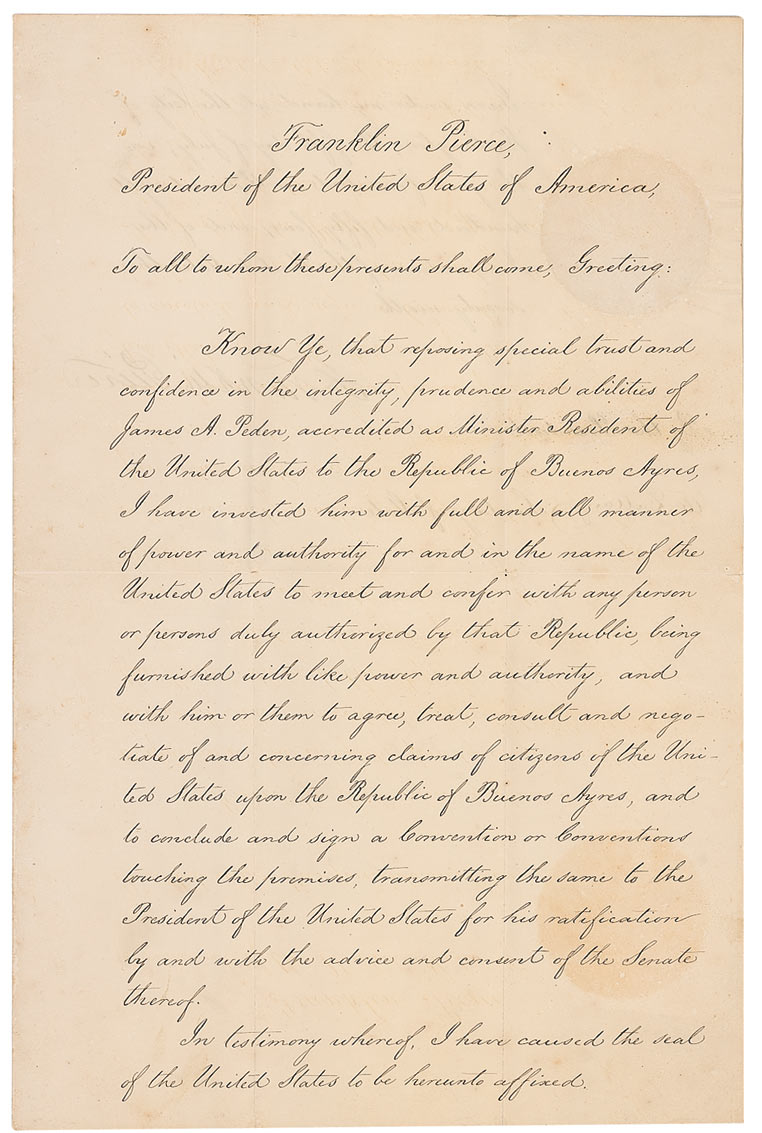 Franklin Pierce,
President of the United States of America,
To all to whom these presents shall come, Greeting:
Know Ye, that reposing special trust and
confidence in the integrity, prudence and abilities of
James A. Peden, accredited as Minister Resident of
the United States to the Republic of Buenos Ayres,
I have invested him with full and all manner
of power and authority for and in the name of the
United States to meet and confer with any person
or persons duly authorized by that Republic, being
furnished with like power and authority, and
with him or them to agree, treat, consult and nego-
tiate of and concerning claims of citizens of the Uni-
ted States upon the Republic of Buenos Ayres, and
to conclude and sign a Convention or Conventions
touching the premises, transmitting the same to the
President of the United States for his ratification
by and with the advice and consent of the Senate
thereof.
In testimony whereof, I have caused the seal
of the United States to be hereunto affixed.